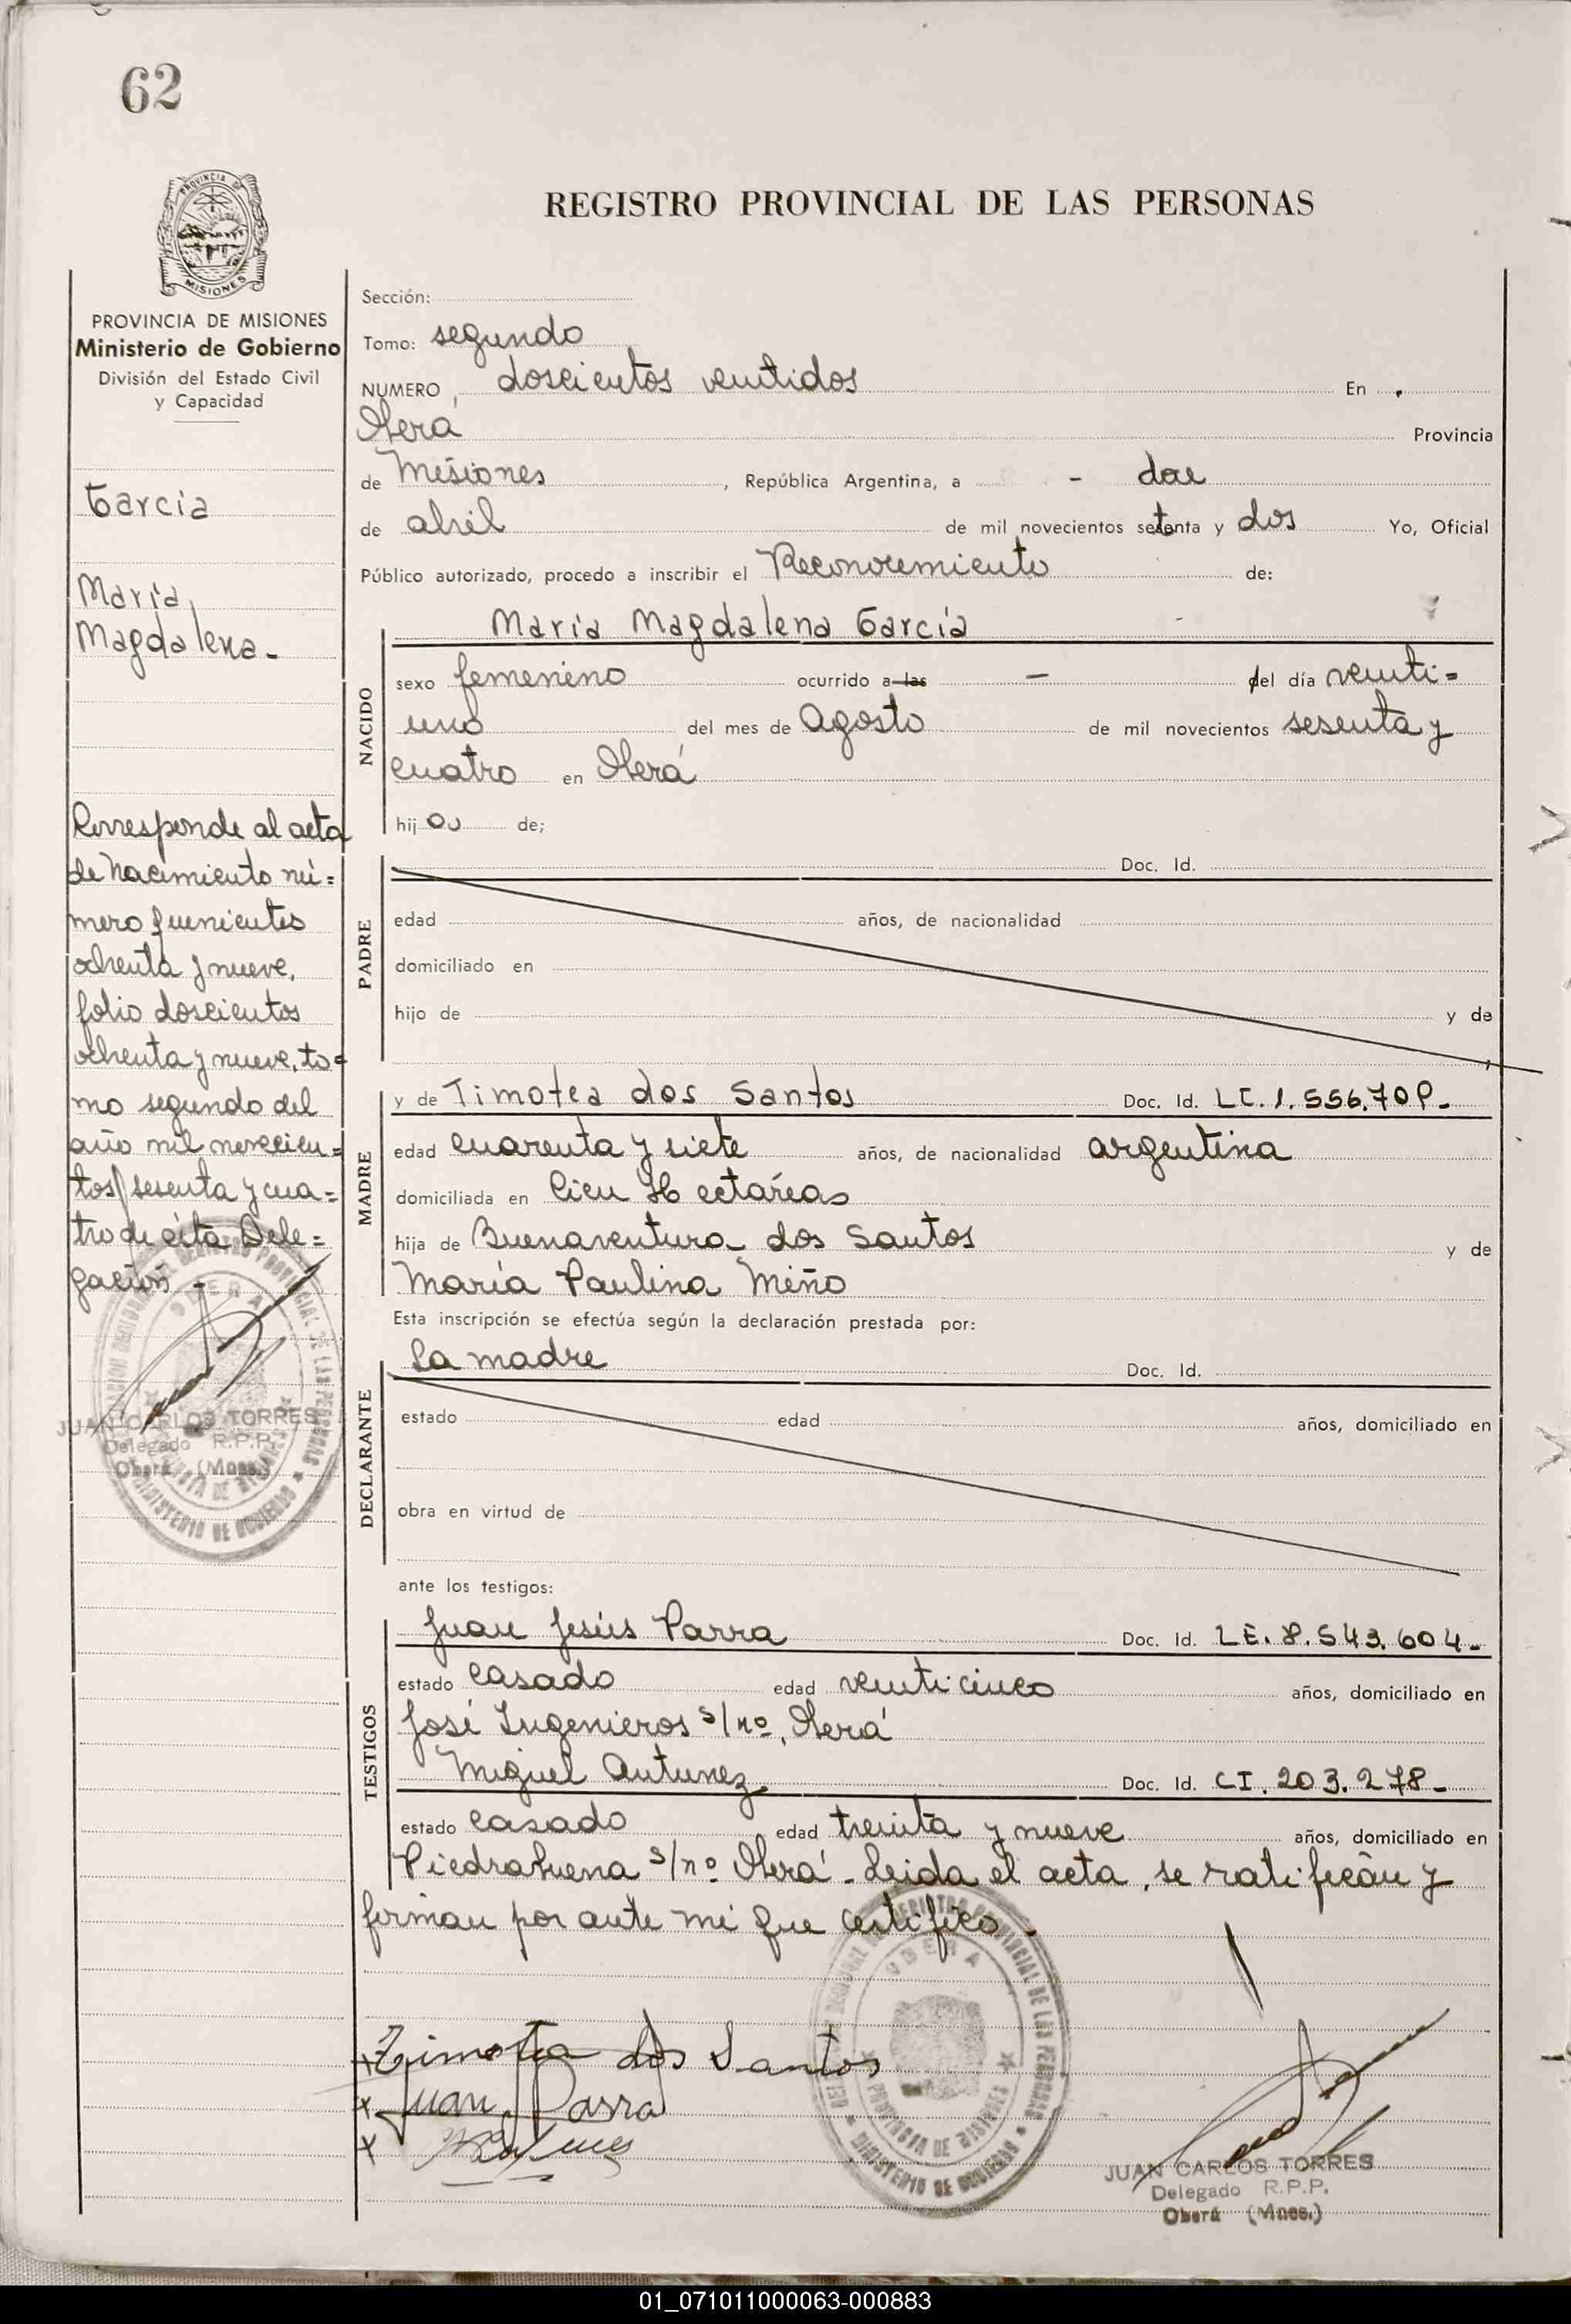 62
PROVINCIA DE
MISIONES
REGISTRO PROVINCIAL DE LAS PERSONAS
PROVINCIA DE MISIONES
Ministerio de Gobierno
División del Estado Civil
y Capacidad
García
María
Magdalena.
Corresponde al acta
de Nacimiento nú=
mero quinientos
ochenta y nueve,
folio doscientos
ochenta y nueve, to=
mo segundo del
año mil novecien=
tos sesenta y cua=
tro de ésta Dele=
gación
JUAN CARLOS TORRES
Delegado R.P.P.
Oberá (Mnes.)
Sección:
Tomo: segundo
NUMERO doscientos ventidos En
Oberá Provincia
de Misiones, República Argentina, a - doce
de abril de mil novecientos setenta y dos Yo, Oficial
Público autorizado, procedo a inscribir el Reconocimiento de:
NACIDO
María Magdalena García -
sexo femenino ocurrido a las - del día veinti=
uno del mes de Agosto de mil novecientos sesenta y
cuatro en Oberá
hij a de;
PADRE
Doc. Id.
edad años, de nacionalidad
domiciliado en
hijo de y de
MADRE
y de Timotea dos Santos Doc. Id. LC. 1.556.709.
edad cuarenta y siete años, de nacionalidad argentina
domiciliada en Cien Hectáreas
hija de Buenaventura dos Santos y de
María Paulina Miño
Esta inscripción se efectúa según la declaración prestada por:
DECLARANTE
La madre Doc. Id.
estado edad años, domiciliado en
obra en virtud de
ante los testigos:
TESTIGOS
Juan Jesús Parra Doc. Id. LE. 8.543.604.
estado casado edad veinticinco años, domiciliado en
José Ingenieros s/nº, Oberá
Miguel Antunez Doc. Id. CI. 203.278.
estado casado edad treinta y nueve años, domiciliado en
Piedrabuena s/nº Oberá. Leida el acta, se ratifican y
firman por ante mi que certifico.
x Timotea dos Santos
x Juan J Parra
x
OBERA
PROVINCIA DE MISIONES
MINISTERIO DE GOBIERNO
JUAN CARLOS TORRES
Delegado R.P.P.
Oberá (Mnes.)
01_071011000063-000883